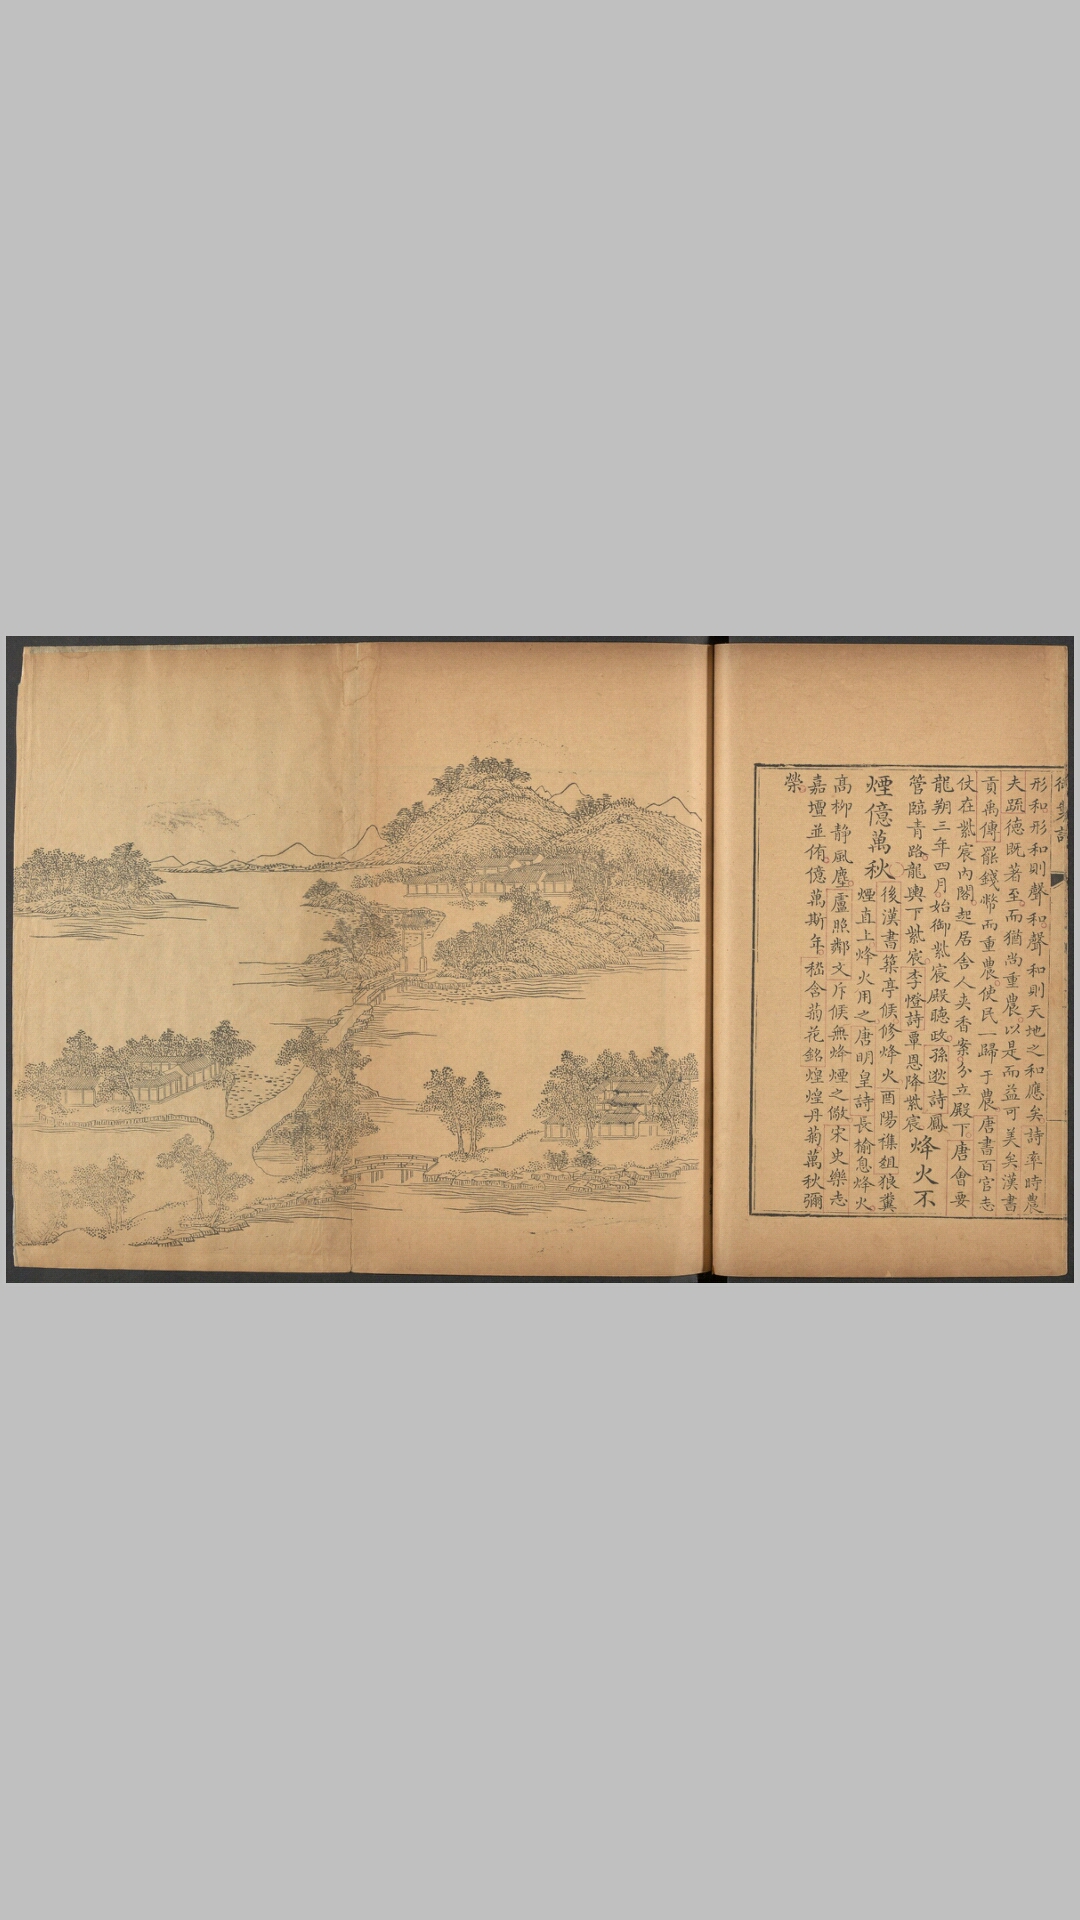 御製詩
形和形和則聲和聲和則天地之和應矣詩率時農
夫䟽德既著至而猶尚重農以是而益可美矣漢書
貢禹傳罷錢幣而重農使民一歸于農唐書百官志
仗在紫宸內閣起居舍人夾香案分立殿下唐會要
龍朔三年四月始御紫宸殿聽政孫逖詩鳳
管臨青路龍輿下紫宸李燈詩覃恩降紫宸烽火不
煙億萬秋後漢書築亭候修烽火酉陽襍俎狼糞
煙直上烽火用之唐明皇詩長榆息烽火
高柳靜風塵盧照鄰文斥候無烽煙之儆宋史樂志
嘉壇並侑億萬斯年嵇含菊花銘煌煌丹菊萬秋彌
榮